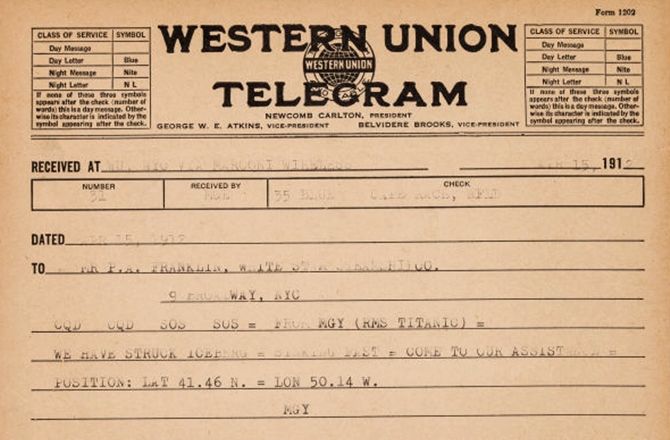 Form 1202
CLASS OF SERVICE SYMBOL
Day Message
Day Letter Blue
Night Message Nite
Night Letter N L
If none of these three symbols
appears after the check (number of
words) this is a day message. Other-
wise its character is indicated by the
symbol appearing after the check.
WESTERN UNION
WESTERN UNION
TELEGRAM
NEWCOMB CARLTON, PRESIDENT
GEORGE W. E. ATKINS, VICE-PRESIDENT BELVIDERE BROOKS, VICE-PRESIDENT
CLASS OF SERVICE SYMBOL
Day Message
Day Letter Blue
Night Message Nite
Night Letter N L
If none of these three symbols
appears after the check (number of
words) this is a day message. Other-
wise its character is indicated by the
symbol appearing after the check.
RECEIVED AT NYC VIA MARCONI WIRELESS 15, 1912
NUMBER RECEIVED BY CHECK
31 35 CAPE RACE, NFLD
DATED APR 15, 1912
TO MR P.A. FRANKLIN, WHITE STAR STEAMSHIP CO.
9 BROADWAY, NYC
CQD CQD SOS SOS = FROM MGY (RMS TITANIC) =
WE HAVE STRUCK ICEBERG = SINKING FAST = COME TO OUR ASSISTANCE =
POSITION: LAT 41.46 N. = LON 50.14 W.
MGY